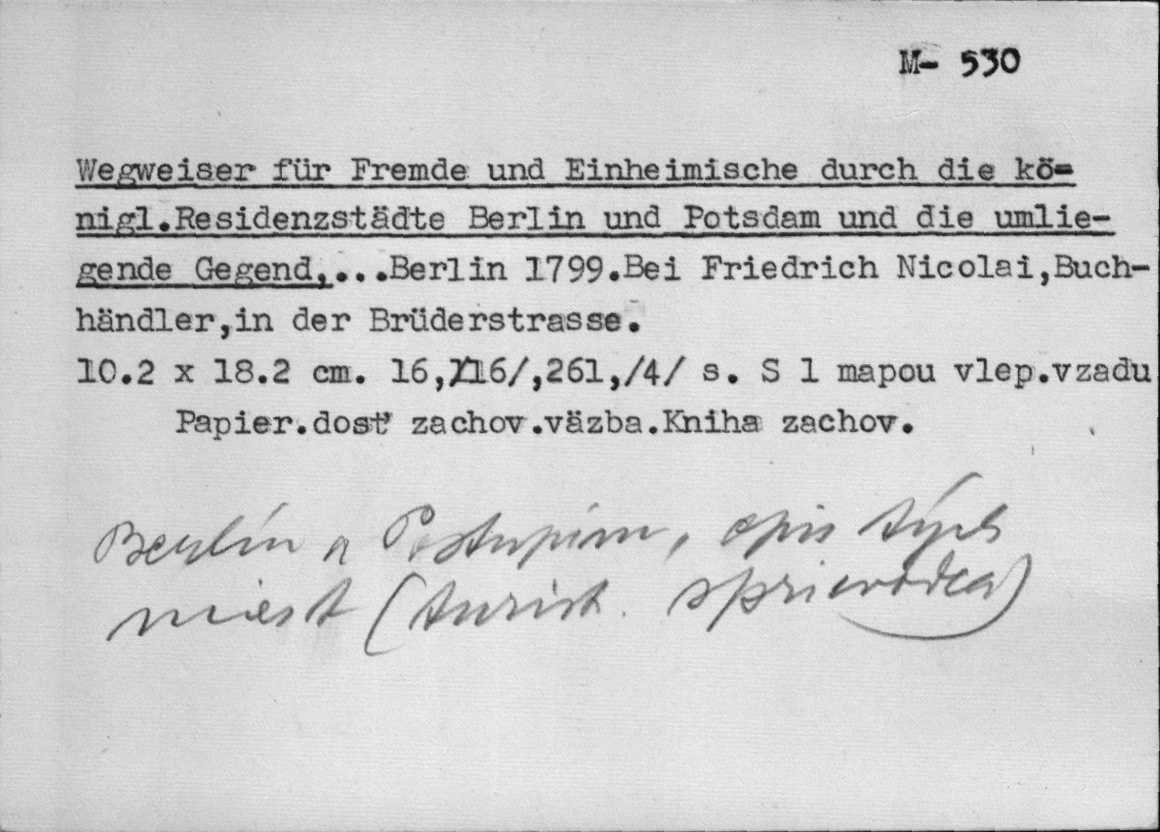 M- 530
Wegweiser für Fremde und Einheimische durch die kö-
nigl.Residenzstädte Berlin und Potsdam und die umlie-
gende Gegend,...Berlin 1799.Bei Friedrich Nicolai,Buch-
händler,in der Brüderstrasse.
10.2 x 18.2 cm. 16,/116/,261,/4/ s. S 1 mapou vlep.vzadu
Papier.dosť zachov.väzba.Kniha zachov.
Berlín a Postupim, opis tých
miest (turist. sprievodca)